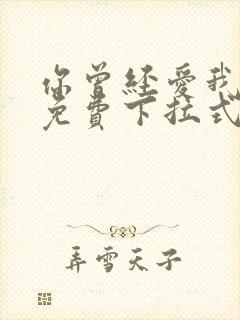 你曾经爱我
免費下拉式
弄雪天子